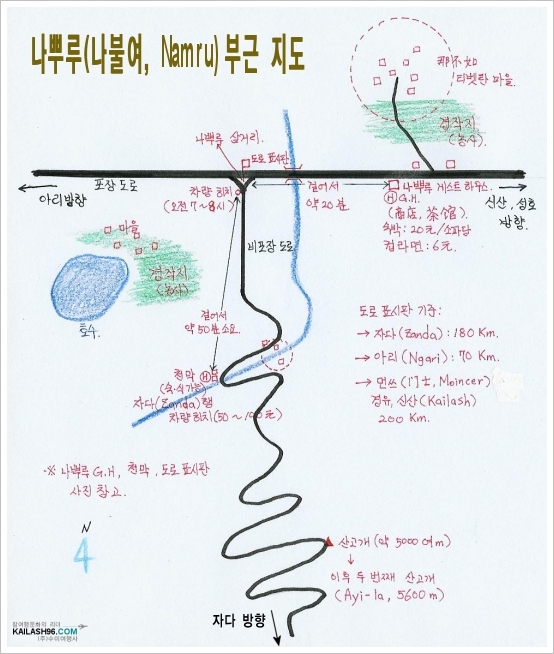 나뿌루(나불여, Namru) 부근 지도
那不如
티벳탄 마을.
경작지
(농사)
나뿌루 삼거리.
도로 표시판
포장 도로
아리방향
차량 히치
(오전 7~8시)
걸어서
약 20분
나뿌루 게스트 하우스.
Ⓗ G.H.
(商店, 茶馆)
숙박: 20元/1인당
컵라면: 6元.
신산, 성호
방향
마을
경작지
(농사)
호수.
비포장 도로
걸어서
약 50분 소요.
도로 표시판 기준:
→ 자다(Zanda): 180 Km.
→ 아리(Ngari): 70 Km.
→ 먼쓰(门士, Moincer)
경유, 신산(Kailash)
200 Km.
천막 Ⓗ
(숙·식 가능)
자다(Zanda)행
차량 히치(50~100元)
※ 나뿌루 G.H, 천막, 도로 표시판
사진 참고.
N
4
산고개(약 5000여m)
이후 두 번째 산고개
(Ayi-la, 5600m)
자다 방향
참여행문화의 리더
KAILASH96.COM
(주)수미여행사